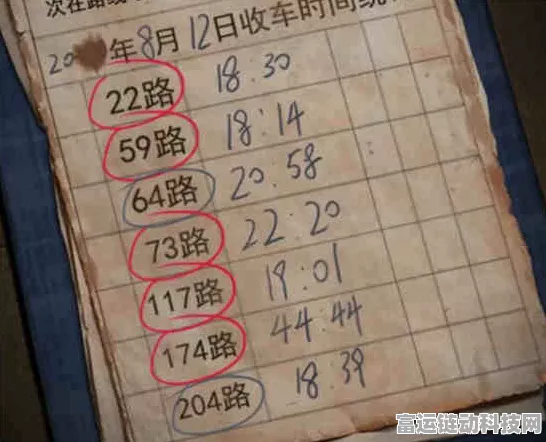 次在路线
20年8月12日收车时间统
22路 18:30
59路 18:14
64路 20:58
73路 22:20
117路 19:01
174路 44:44
204路 18:39
富运链动科技网